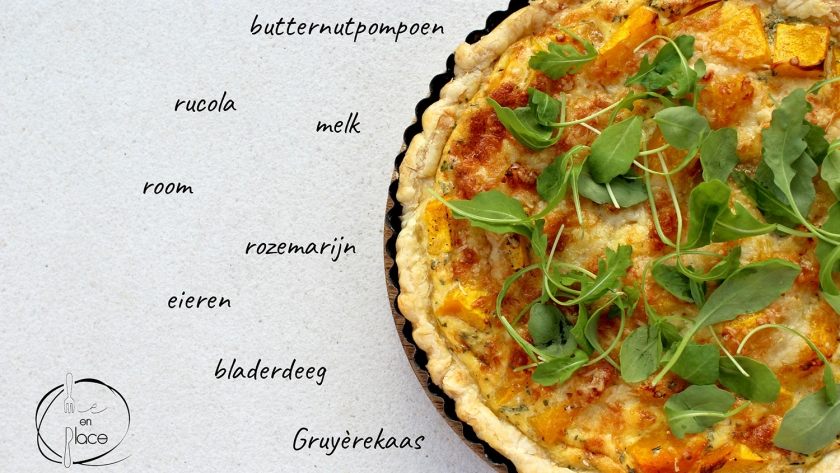 butternutpompoen
rucola
melk
room
rozemarijn
eieren
bladerdeeg
Gruyèrekaas
Mise
en
Place